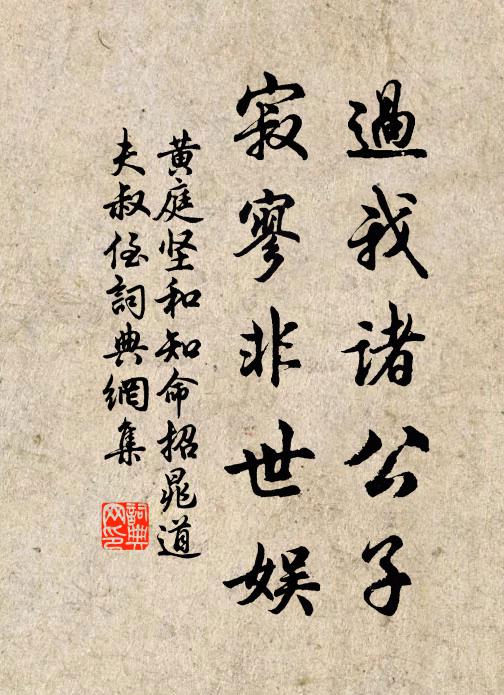 過我諸公子
寂寥非世娱
黄庭坚和知命招晁道
夫叔侄詞典網集
詞典网印